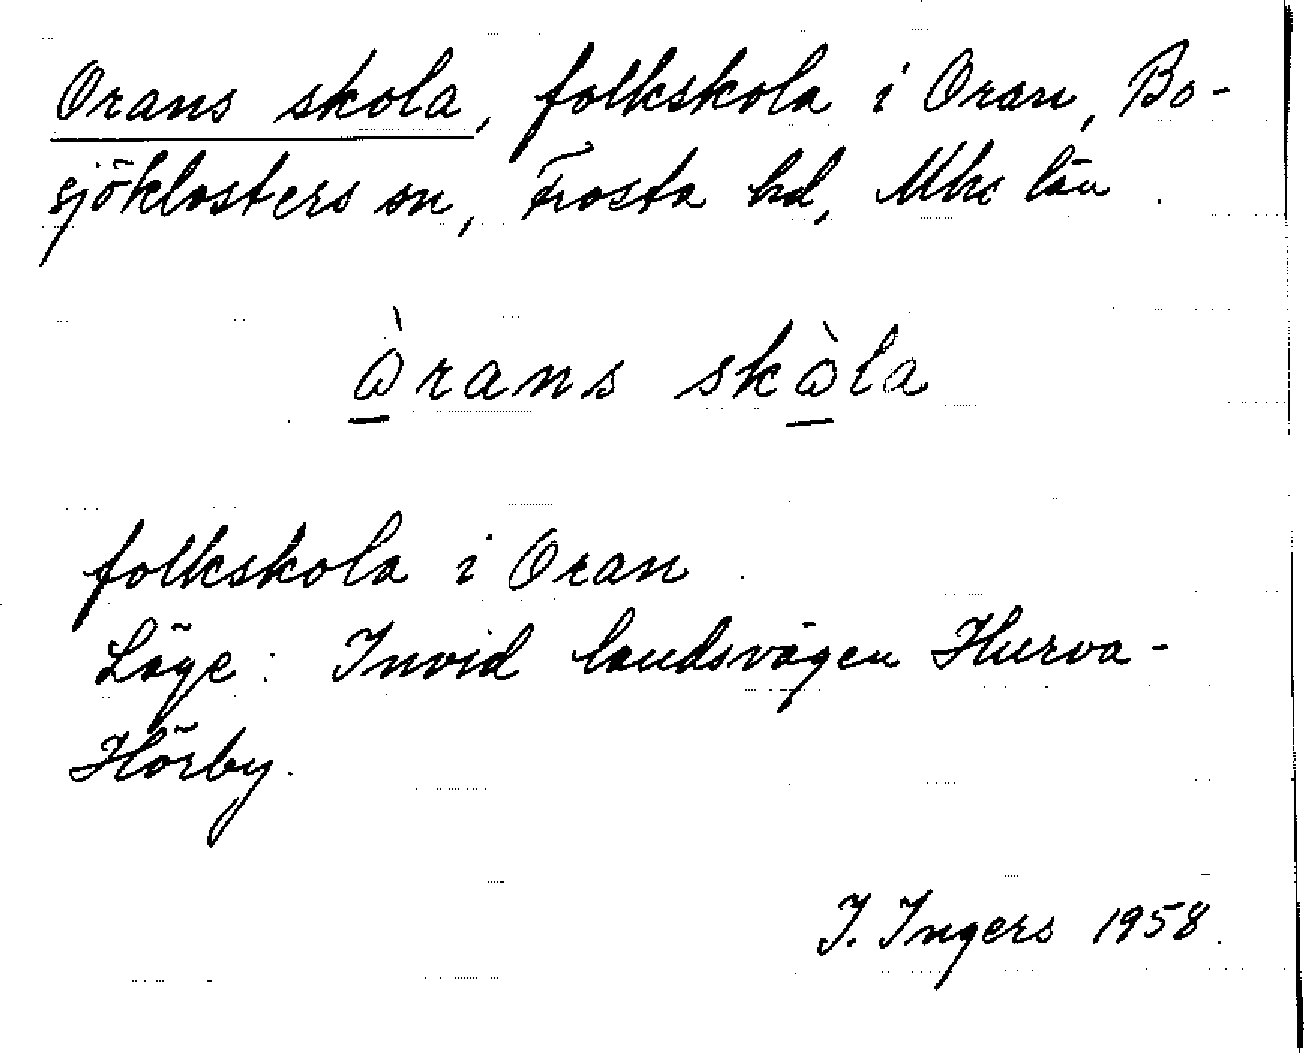 Orans skola, folkskola i Oran, Bo-
sjöklosters sn, Frosta hd, Mhs län.
òrans skòla
folkskola i Oran
Läge: Invid landsvägen Hurva-
Hörby.
I. Ingers 1958.